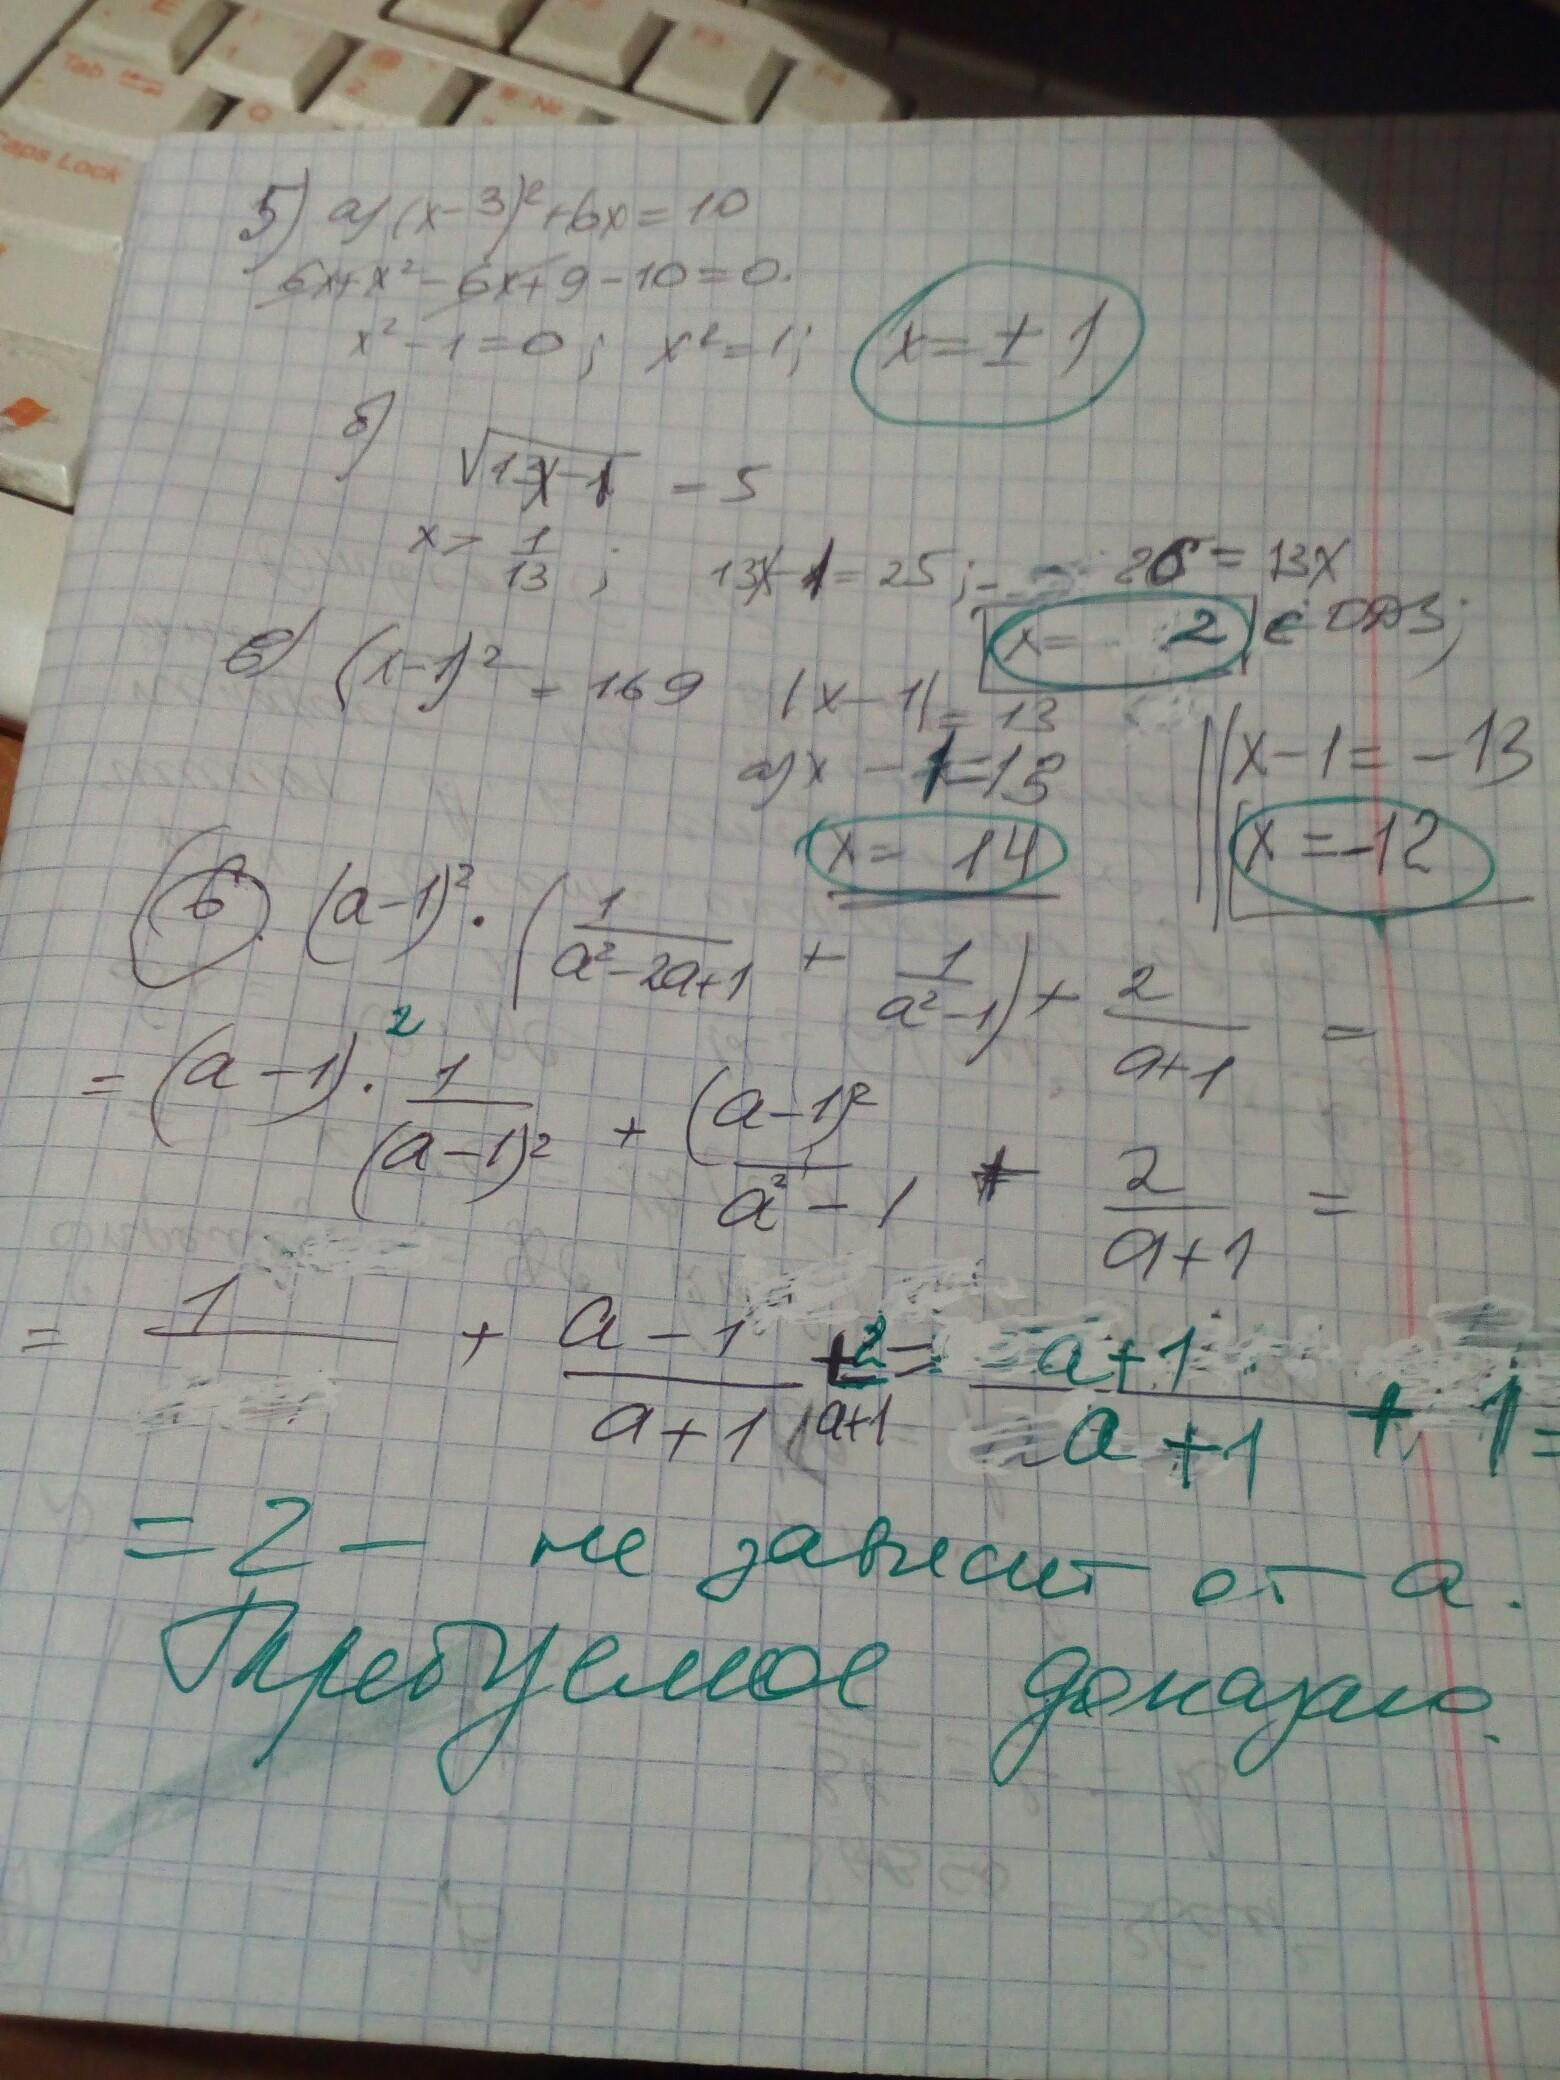 E
Tab
1
2
№
F3
F4
Caps Lock
5) а) (x-3)²+6x=10
6x+x²-6x+9-10=0.
x²-1=0; x²=1; x=±1
б)
√13x-1 = 5
x > 1/13 ; 13x-1=25; 26=13x
x= 2 ∈ ОДЗ;
в) (x-1)² = 169 |x-1| = 13
а) x - 1=13 x-1=-13
x= 14 x=-12
6. (a-1)² · (1/(a²-2a+1) + 1/(a²-1)) + 2/(a+1) =
= (a-1)² · 1/(a-1)² + (a-1)²/(a²-1) + 2/(a+1) =
= 1 + (a-1)/(a+1) + 2/(a+1) = (a+1)/(a+1) + 1 =
= 2 - не зависит от a.
Требуемое доказано.